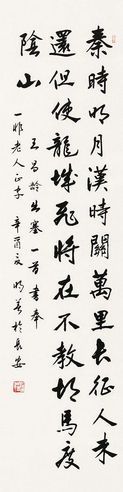 秦時明月漢時關萬里長征人未
還但使龍城飛將在不教胡馬度
陰山
王昌齡出塞一首書奉
老人正字 辛酉夏 於長安